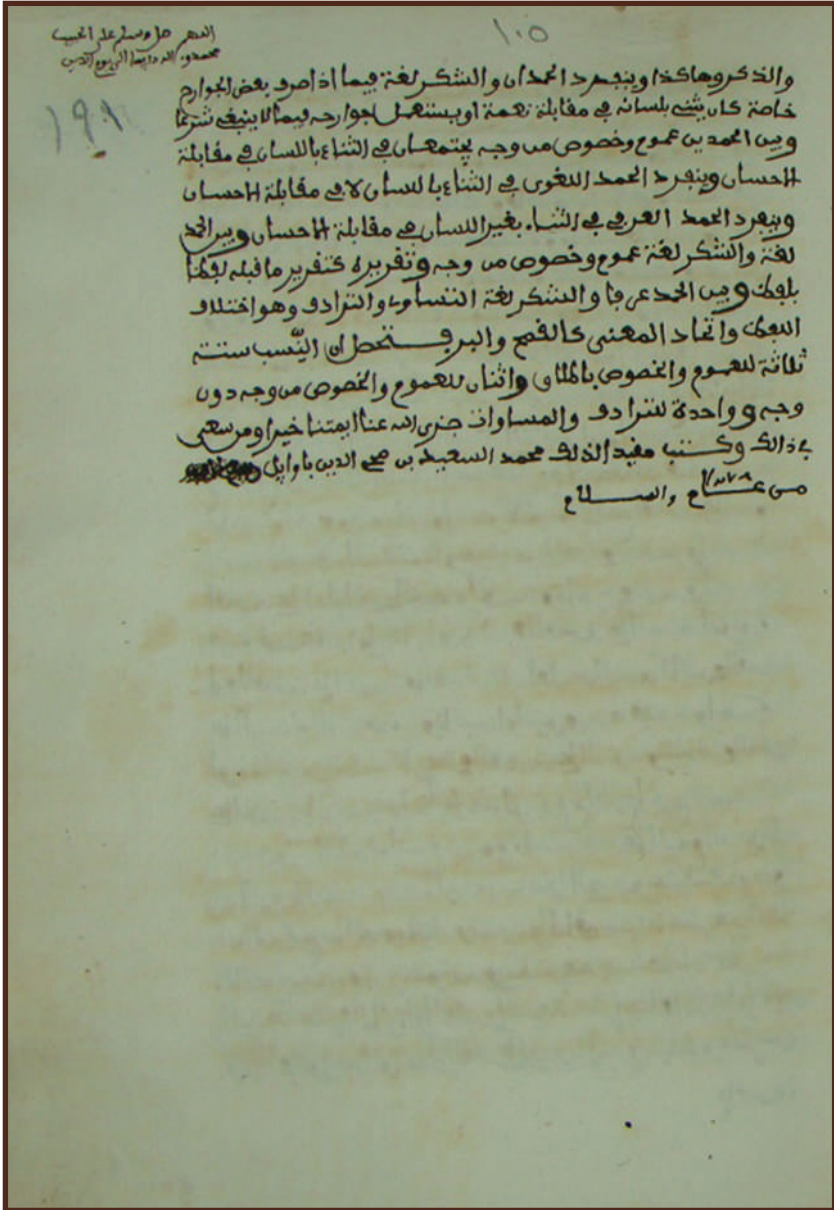 اللهم صل وسلم على الحبيب
محمد وءاله دايما الى يوم الدين
١٠٥
١٩١
والذكر وهاكذا وينفرد الحمدان والشكر لغة فيما اذا صرف بعض الجوارح
خاصة كان يثني بلسانه في مقابلة نعمة او يستعمل جوارحه فيما لا ينبغي شرعا
وبين الحمدين عموم وخصوص من وجه يجتمعان في الثناء باللسان في مقابلة
الاحسان وينفرد الحمد اللغوي في الثناء باللسان لا في مقابلة الاحسان
وينفرد الحمد العرفي في الثناء بغير اللسان في مقابلة الاحسان وبين الحمد
لغة والشكر لغة عموم وخصوص من وجه وتقريره كتقرير ما قبله لفظا
بلفظ وبين الحمد عرفا والشكر لغة التساوي والترادف وهو اختلاف
اللفظ واتحاد المعنى كالقمح والبر فتحصل ان النّسب ستة
ثلاثة للعموم والخصوص بالمطلق واثنان للعموم والخصوص من وجه دون
وجه وواحدة للترادف والمساوات جزى الله عنا ايمتنا خيرا ومن سعى
في ذالك وكتب مفيد الذلك محمد السعيد بن محي الدين باوايل
من عام والسلام